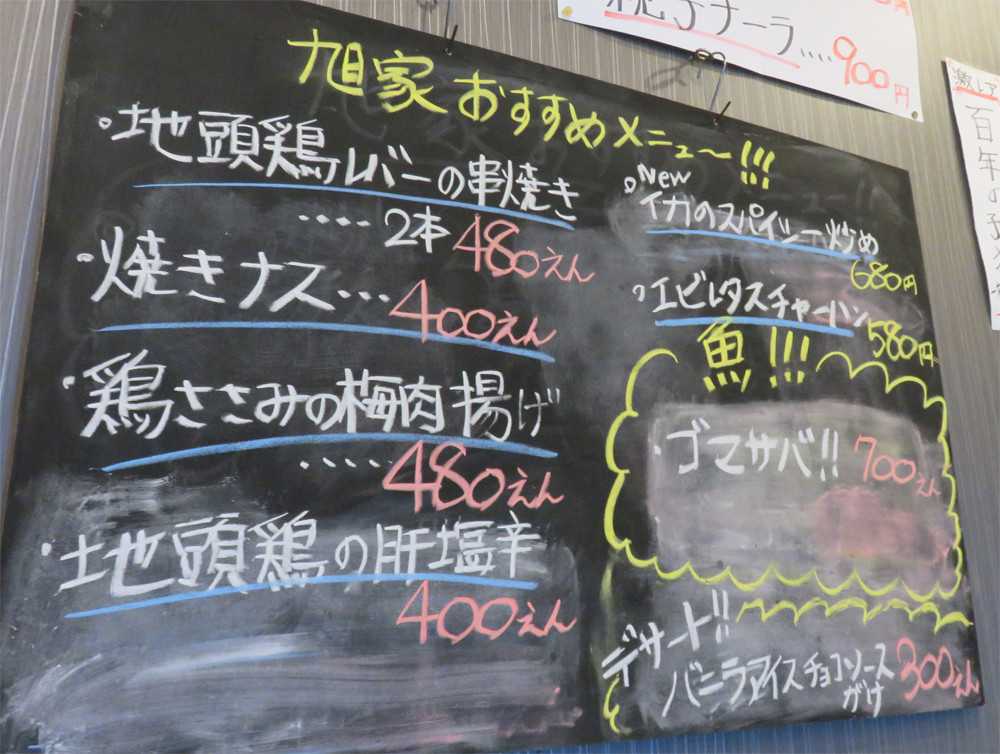 親子ナーラ....900円
激レア
百年の
旭家おすすめメニュー!!!
・地頭鶏レバーの串焼き
.....2本480えん
・焼きナス...400えん
・鶏ささみの梅肉揚げ
.....480えん
・地頭鶏の肝塩辛
400えん
New
・イカのスパイシー炒め
680円
・エビレタスチャーハン
580円
魚!!!
・ゴマサバ!!700えん
デザート!!
バニラアイスチョコソース
がけ300えん